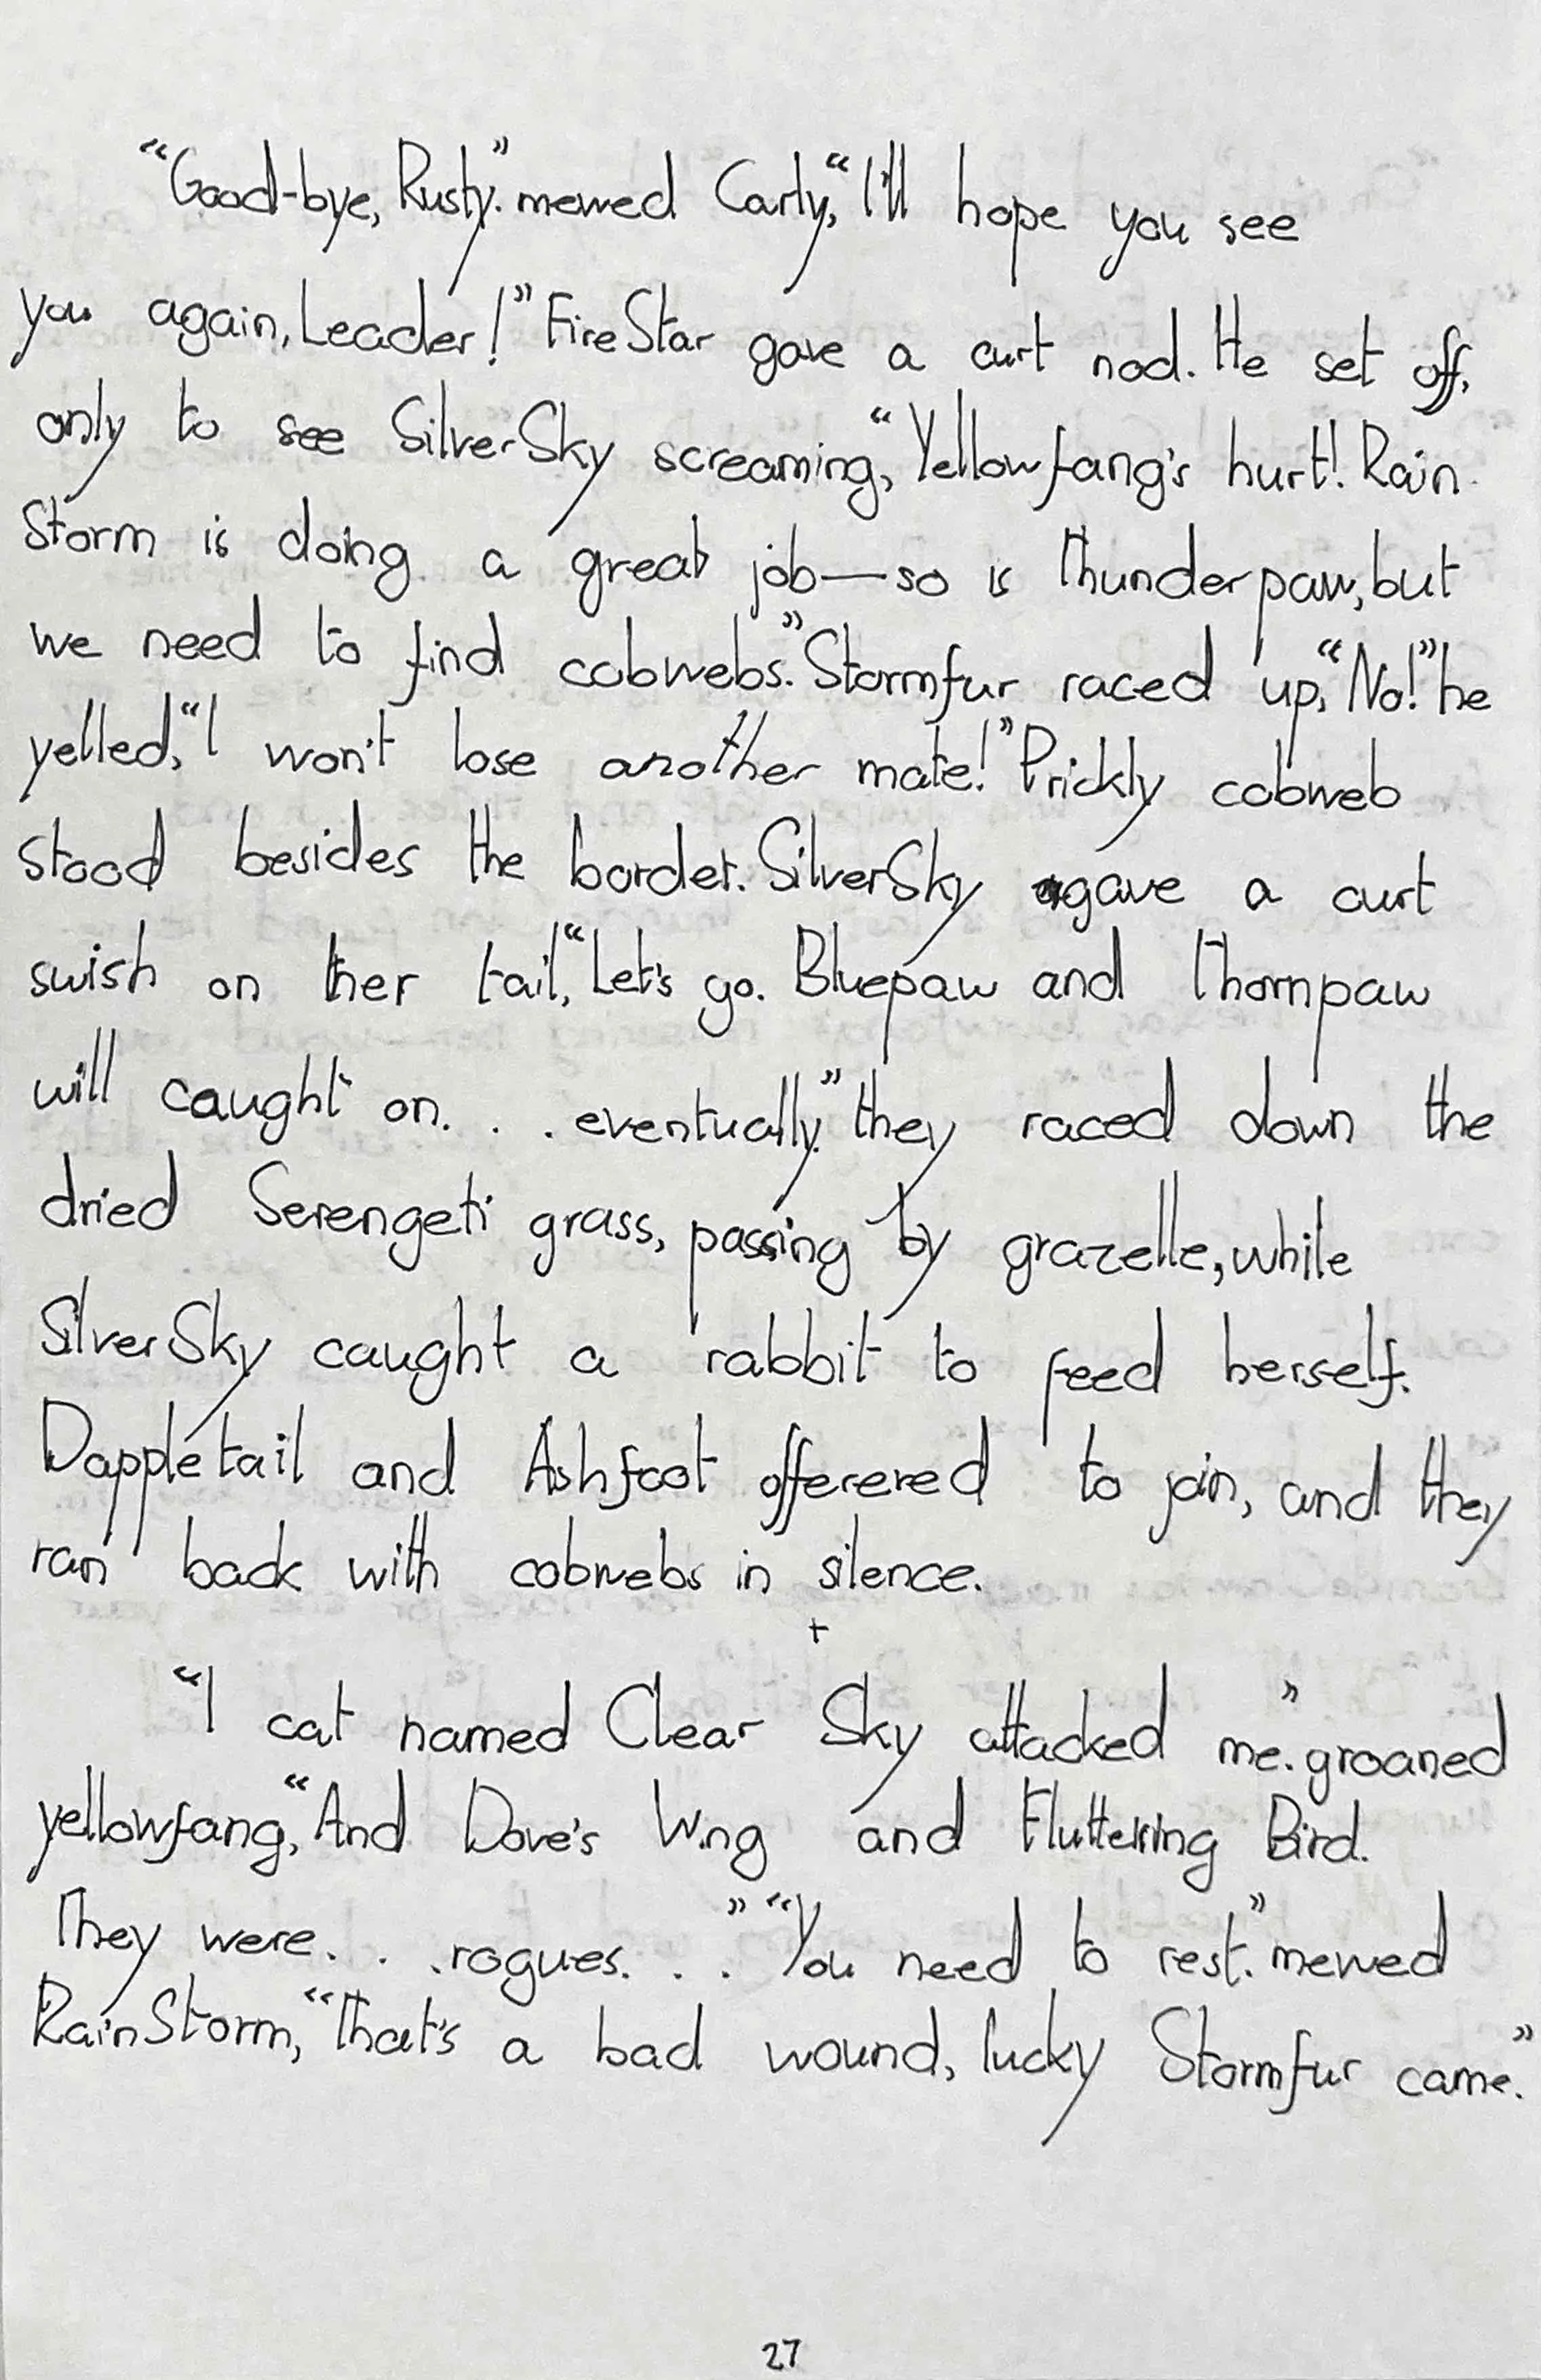 “Good-bye, Rusty.” mewed Carly, “I'll hope you see
you again, Leader!” FireStar gave a curt nod. He set off,
only to see SilverSky screaming, “Yellowfang's hurt! Rain
Storm is doing a great job—so is Thunderpaw, but
we need to find cobwebs.” Stormfur raced up, “No!” he
yelled, “I won't lose another mate!” Prickly cobweb
stood besides the border. SilverSky gave a curt
swish on ther tail, “Let's go. Bluepaw and Thornpaw
will caught on. . . eventually.” they raced down the
dried Serengeti grass, passing by grazelle, while
SilverSky caught a rabbit to feed herself.
Dappletail and Ashfoot offerered to join, and they
ran back with cobwebs in silence.
+
“I cat named Clear Sky attacked me.” groaned
yellowfang, “And Dove's Wing and Fluttering Bird.
They were. . . rogues. . .” “You need to rest.” mewed
RainStorm, “That's a bad wound, lucky Stormfur came.”
27